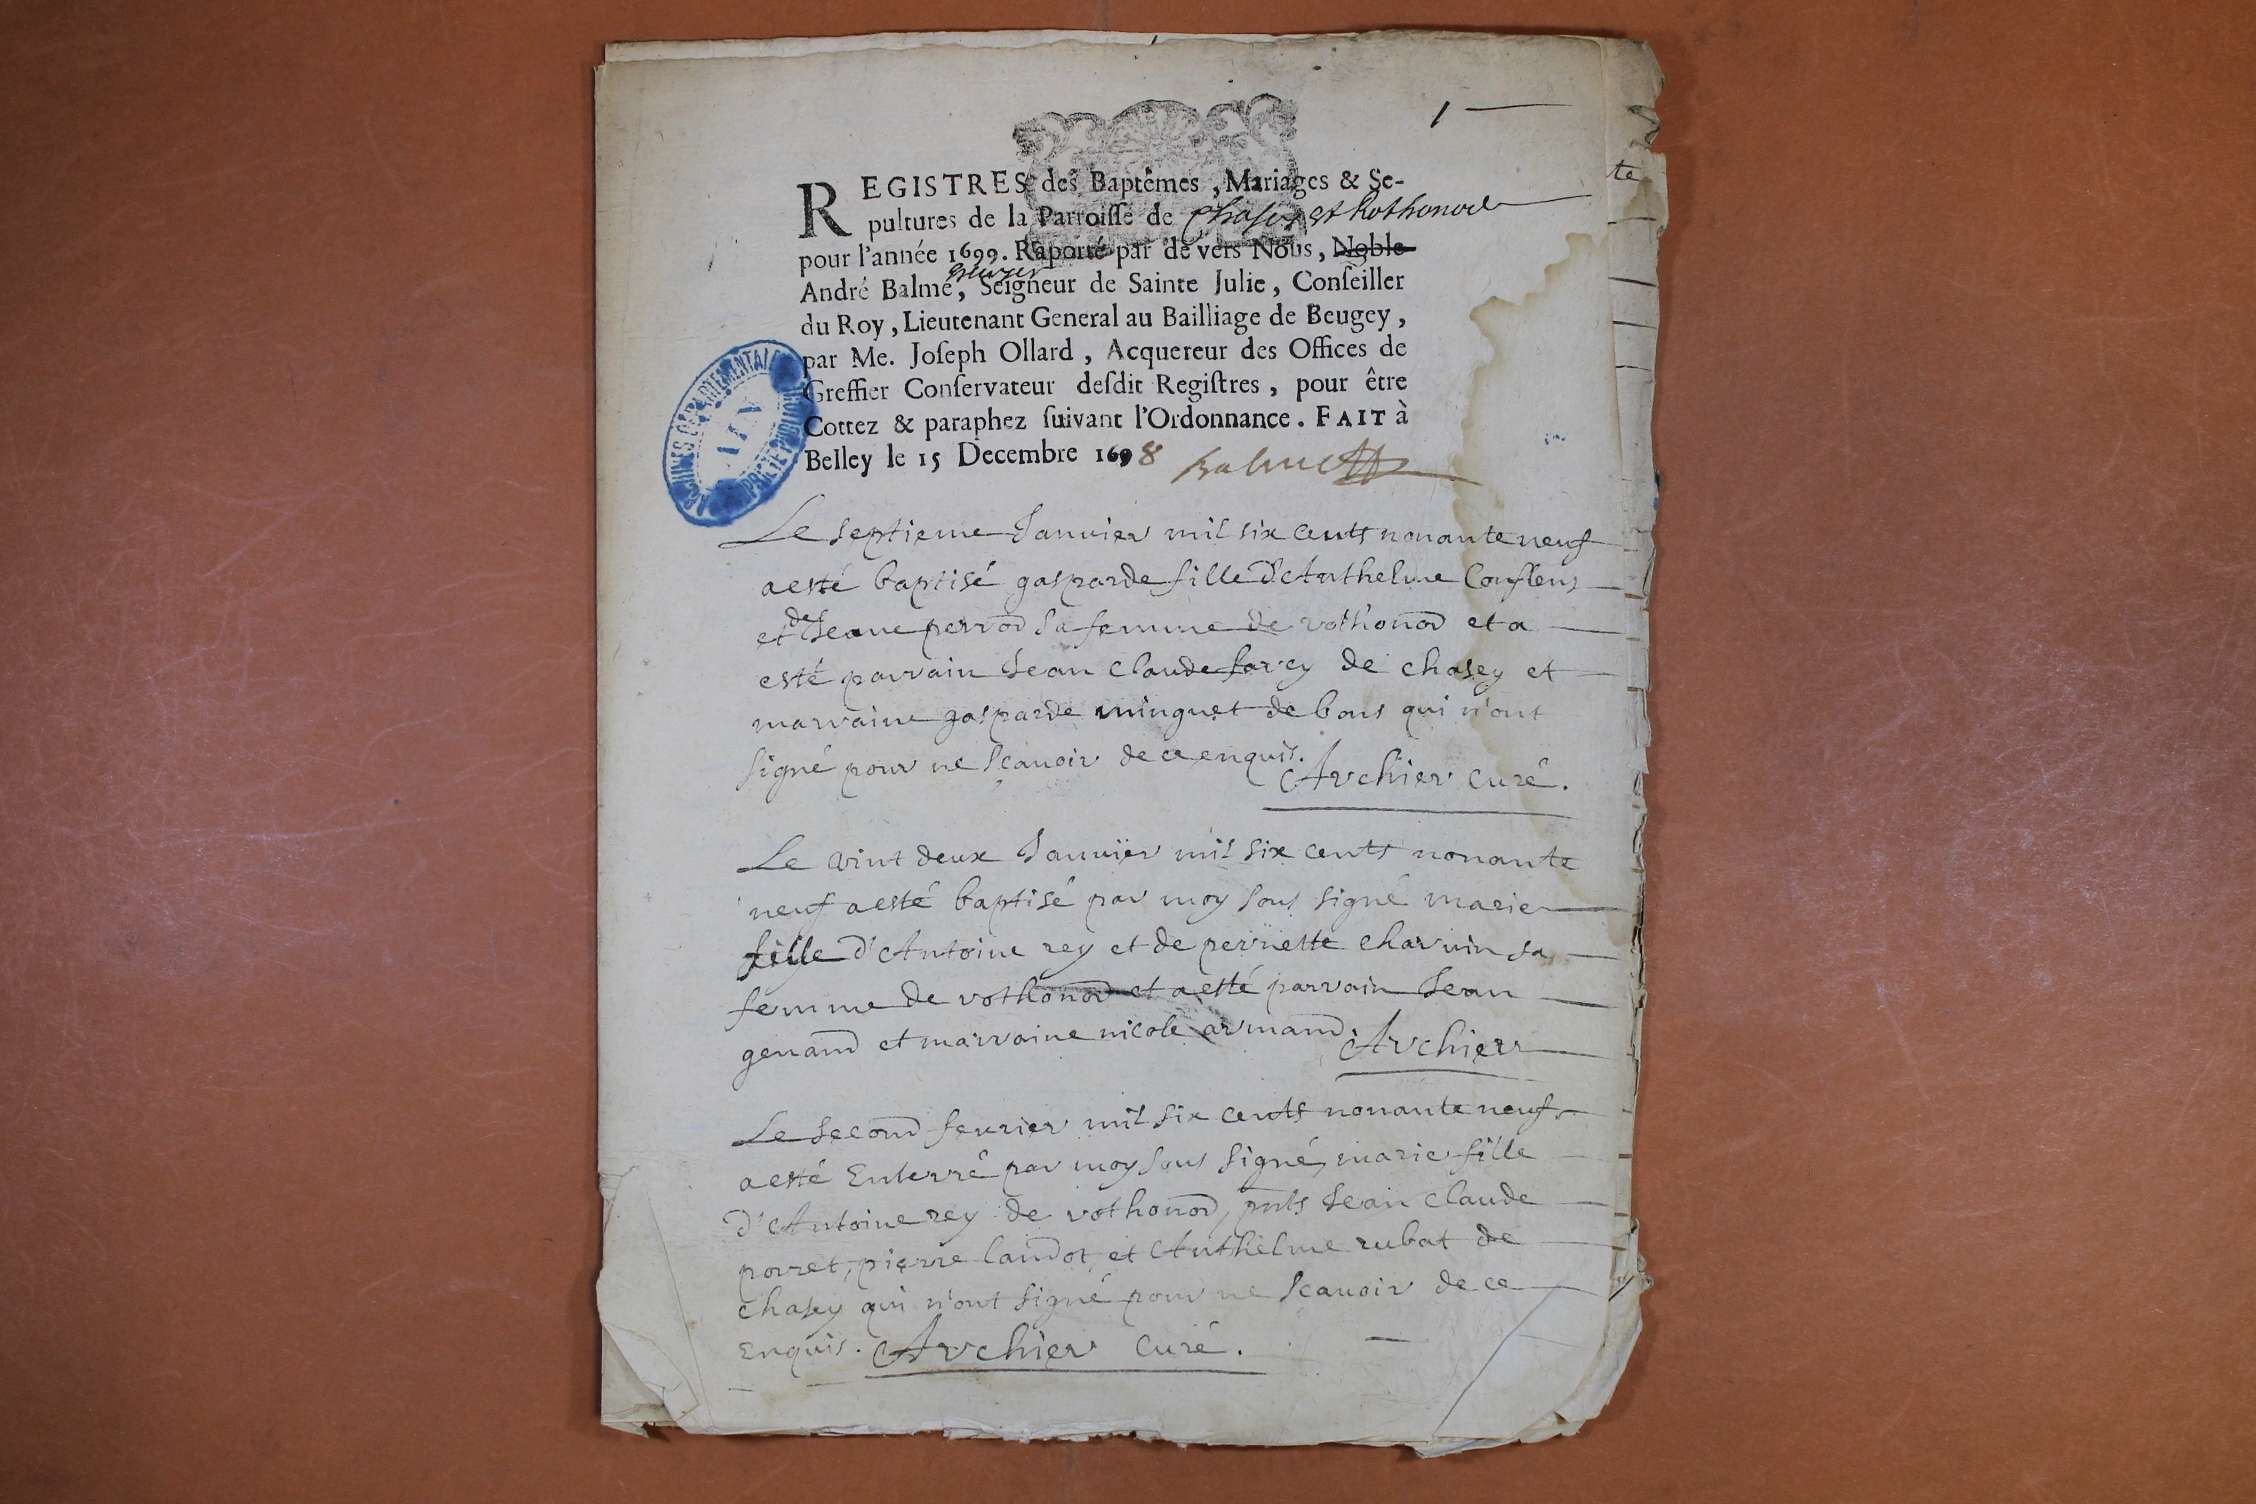 1
REGISTRES des Baptêmes, Mariages & Se-
pultures de la Parroisse de Chasey et Rothonod
pour l'année 1699. Raporté par de vers Nous, Noble
André Balme, Seigneur de Sainte Julie, Conseiller
du Roy, Lieutenant General au Bailliage de Beugey,
par Me. Joseph Ollard, Acquereur des Offices de
Greffier Conservateur desdit Registres, pour être
Cottez & paraphez suivant l'Ordonnance. FAIT à
Belley le 15 Decembre 1698 Balme
ARCHIVES DÉPARTEMENTALES
AIN
te
Le septieme Janvier mil six cents nonante neuf
a esté baptisé gasparde fille d'Anthelme Conflens
et de Jeane perrod sa femme de rothonod et a
esté parrain Jean Claude farcy de chasey et
marraine gasparde minguet de bons qui n'ont
signé pour ne scauoir de ce enquis.
Archier curé.
Le vint deux Janvier mil six cents nonante
neuf a esté baptisé par moy sous signé marie
fille d'Antoine rey et de pernette charvin sa
femme de rothonod et a esté parrain Jean
genand et marraine nicole armand. Archier
Le second feurier mil six cents nonante neuf
a esté Enterré par moy sous signé, marie fille
d'Antoine rey de rothonod, pnts Jean Claude
porret, pierre landot et Anthelme rubat de
chasey qui n'ont signé pour ne scauoir de ce
Enquis. Archier curé.